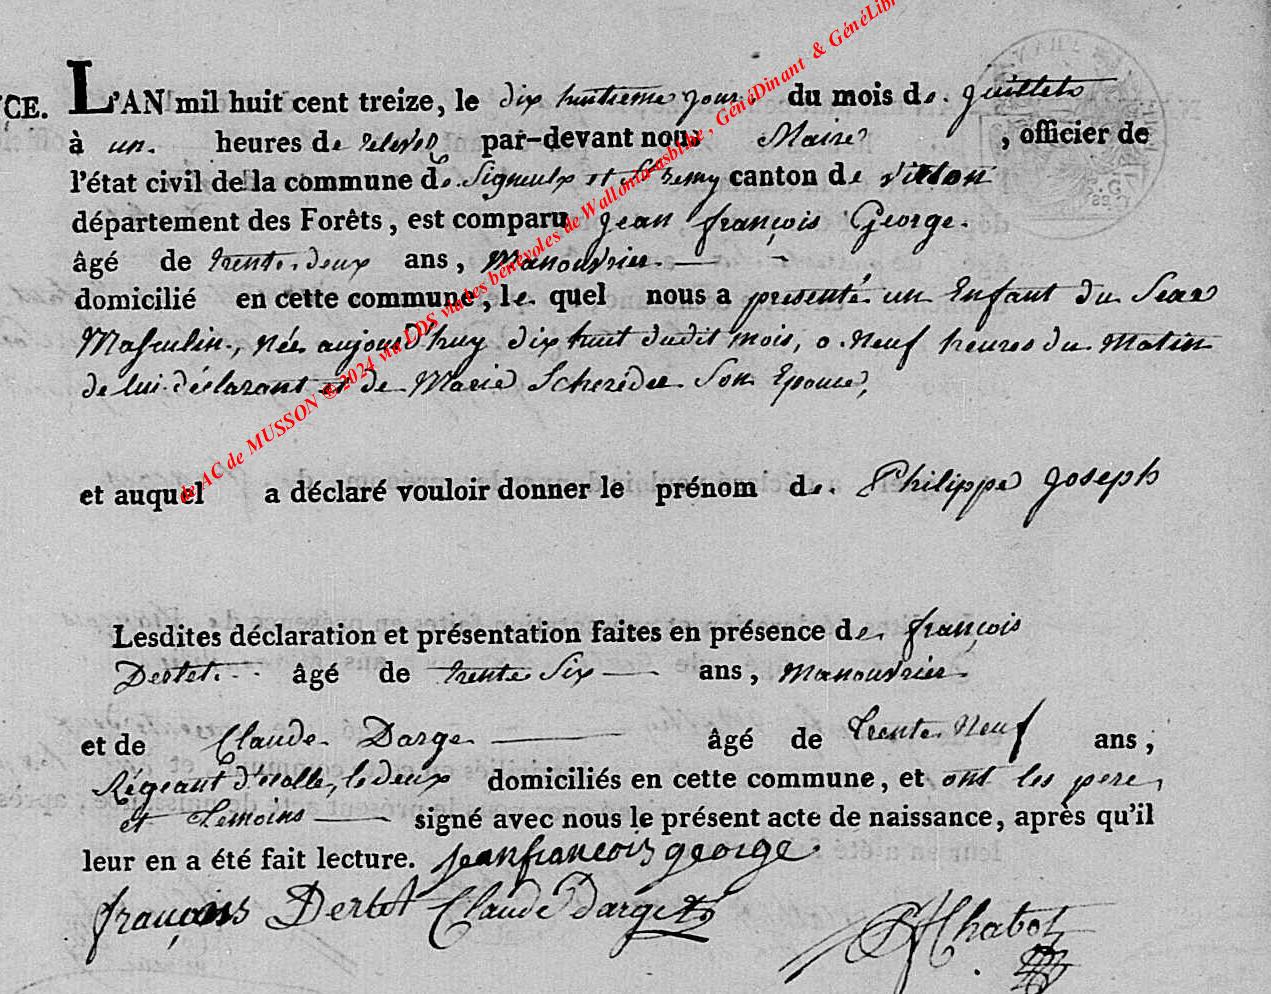 CE. L'AN mil huit cent treize, le dix huitieme jour du mois de juillet
à un heures de relevé par-devant nous Maire , officier de
l'état civil de la commune de Signeulx et St remy canton de virton
département des Forêts, est comparu jean françois George.
âgé de trente deux ans, Manouvrier
domicilié en cette commune, le quel nous a presenté un Enfant du Sexe
Masculin, née aujourd'huy dix huit dudit mois, a neuf heures du Matin
de lui déclarant et de Marie Son Epouse,
et auquel a déclaré vouloir donner le prénom de Philippe joseph
Lesdites déclaration et présentation faites en présence de françois
âgé de trente Six ans, Manouvrier
et de Claude Darge âgé de trente Neuf ans,
Régeant d'Ecolle, les deux domiciliés en cette commune, et ont les pere
et temoins signé avec nous le présent acte de naissance, après qu'il
leur en a été fait lecture. jean francois george
françois Derlot Claude Darget
Chabot
de AC de MUSSON ©2024 via LDS via les bénévoles de Wallonia asbl be, GénéDinant & GénéLibr